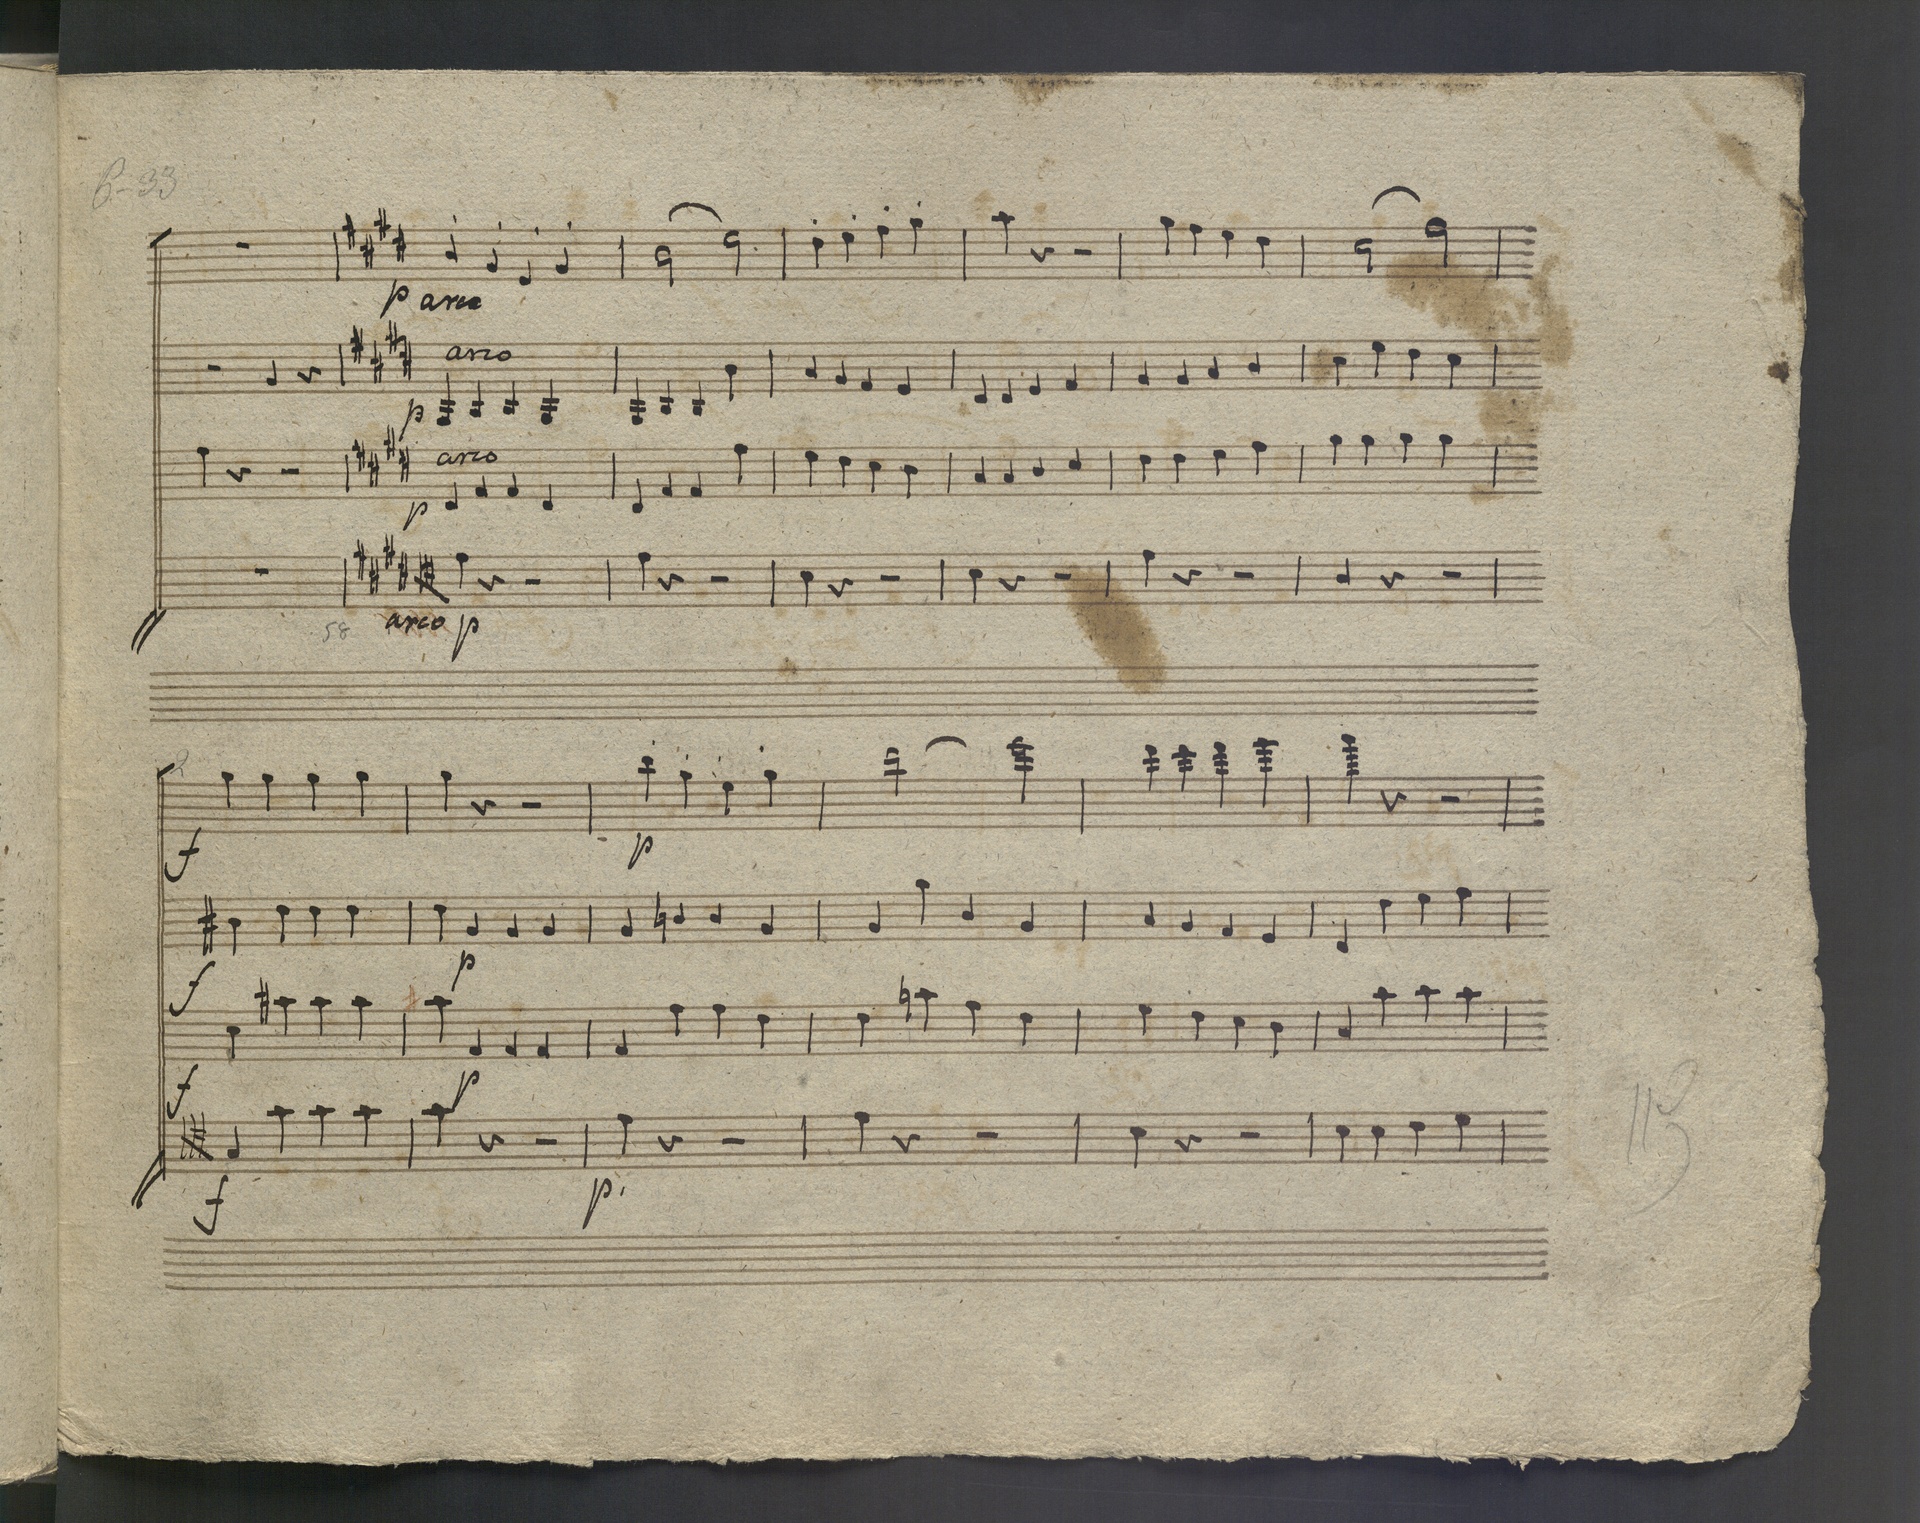 6-33
p arco
arco
p
arco
p
58 arco p
f p
f p
f p
f p.